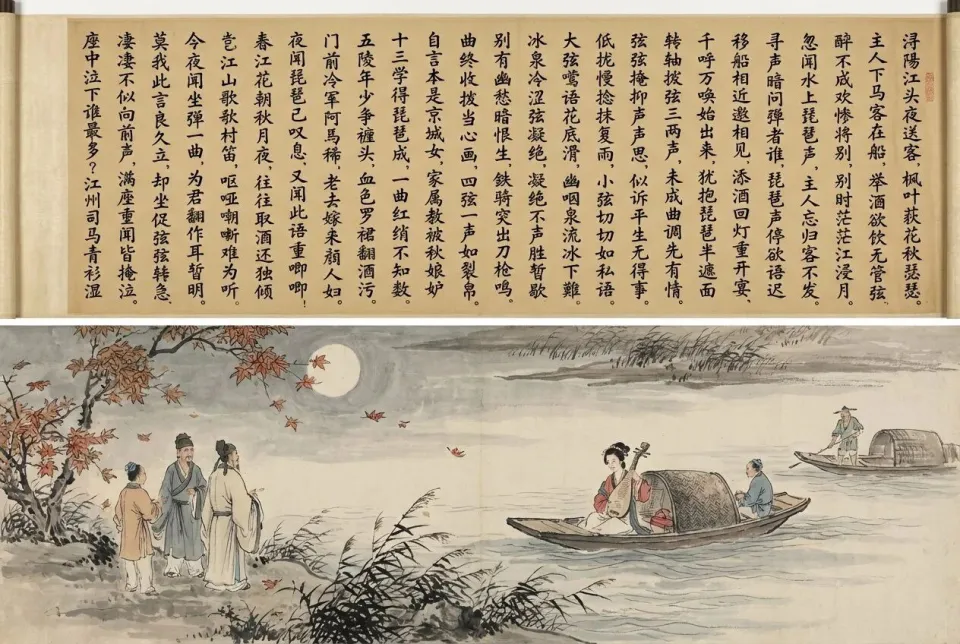 浔陽江头夜送客，枫叶荻花秋瑟瑟。
主人下马客在船，举酒欲飲无管弦
醉不成欢惨将别，别时茫茫江浸月。
忽闻水上琵琶声，主人忘归客不发。
寻声暗问弹者谁，琵琶声停欲语迟
移船相近邀相见，添酒回灯重开宴、
千呼万唤始出来，犹抱琵琶半遮面
转轴拨弦三两声，未成曲调先有情。
弦弦掩抑声声思，似诉平生无得事。
低扰慢捻抹复雨，小弦切切如私语。
大弦鶯语花底滑，幽咽泉流冰下難。
冰泉冷涩弦凝绝，凝绝不声胜暂歇
别有幽愁暗恨生，鉄骑突出刀枪鸣。
曲终收拨当心画，四弦一声如裂帛。
自言本是京城女，家属教被秋娘妒
十三学得琵琶成，一曲红绡不知数。
五陵年少争缠头，血色罗裙翻酒污。
门前冷军阿馬稀，老去嫁来顔人妇。
夜闻琵琶已叹息，又闻此语重唧唧！
春江花朝秋月夜，往往取酒还独倾
岂江山歌歌村笛，呕哑嘲哳难为听。
今夜闻坐弹一曲，为君翻作耳暂明。
莫我此言良久立，却坐促弦弦转急
凄凄不似向前声，满座重闻皆掩泣。
座中泣下谁最多？江州司马青衫湿